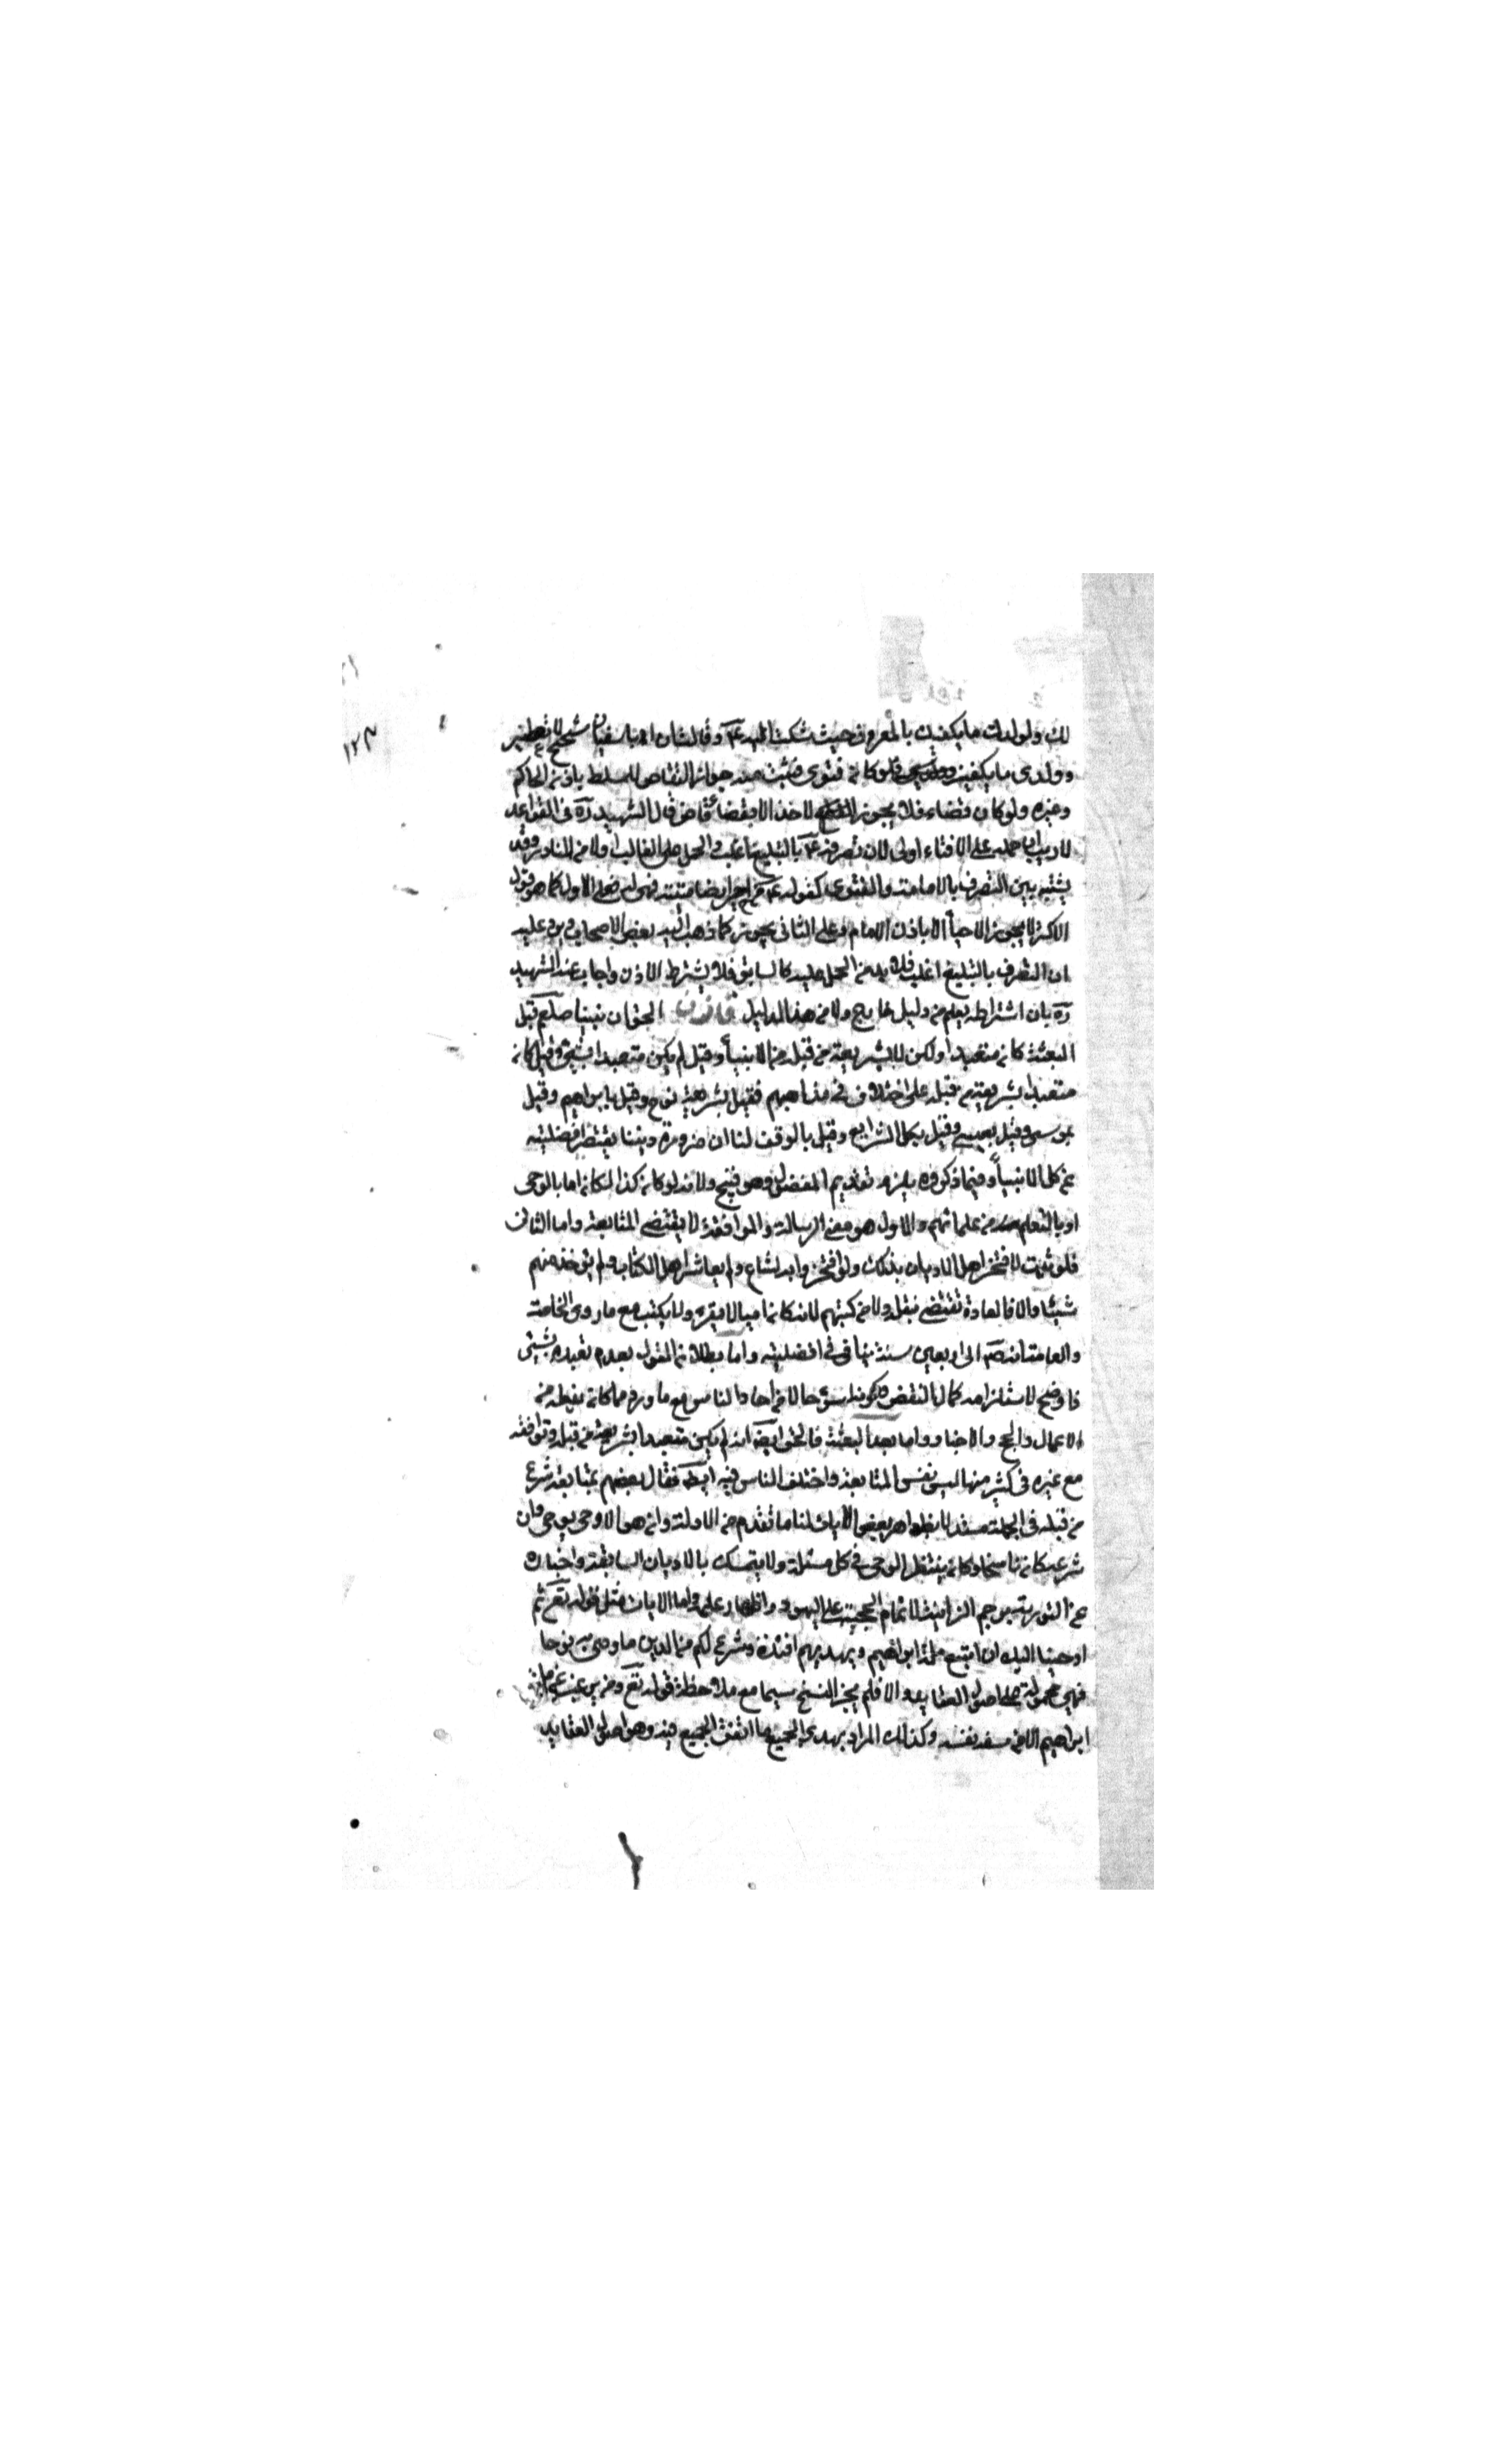 لك ولولدك ما يكفيك بالمعروف حيث شكت اليه ع وقالت ان ابا سفيان شحيح لا يعطيني
وولدي ما يكفيني فلو كان فتوى فيثبت منه جواز التقاص للمسلط باذن الحاكم
وغيره ولو كان قضاء فلا يجوز الاخذ الا بقضاء قاض قال الشهيد ره في القواعد
لا ريب ان حمله على الافتاء اولى لان تصرفه ع بالتبليغ اغلب والحمل على الغالب اولى من النادر وقد
يشتبه بين التصرف بالامامة والفتوى كقوله ع من احيى ارضا ميتة فهي له فعلى الاول كما هو قول
الاكثر لا يجوز الاحياء الا باذن الامام وعلى الثاني يجوز كما ذهب اليه بعض الاصحاب ويرد عليه
ان التصرف بالتبليغ اغلب فلا بد من الحمل عليه كالسابق فلا يشترط الاذن واجاب عنه الشهيد
ره بان اشتراطه يعلم من دليل خارج ولا من هذا الدليل قانون الحق ان نبينا صلعم قبل
البعثة كان متعبدا ولكن لا بشريعة من قبله من الانبياء وقيل لم يكن متعبدا بشيء وقيل كان
متعبدا بشريعة من قبله على اختلاف في مذاهبهم فقيل بشريعة نوح وقيل بابراهيم وقيل
بموسى وقيل بعيسى وقيل بكل الشرايع وقيل بالوقف لنا ان ضرورة ديننا يقتضي افضليته
عن كل الانبياء وفيما ذكروه يلزم تقديم المفضول وهو قبيح ولانه لو كان كذلك لكان اما بالوحي
او بالتعلم من علمائهم والاول هو معنى الرسالة والموافقة لا يقتضي المتابعة واما الثاني
فلو ثبت لافتخر اهل الاديان بذلك ولو افتخروا به لشاع ولم يعاشر اهل الكتاب ولم يؤخذ منهم
شيئا والا فالعادة تقتضي نقله ولا من كتبهم لانه كان اميا لا يقرء ولا يكتب مع ما روى الخاصة
والعامة انه ص الى اربعين سنة ينافي في افضليته واما بطلان القول بعدم تعبده بشيء
فاوضح لاستلزامه كمال النقص وكونه اسوء حالا من احاد الناس مع ما ورد مما كان يفعله من
الاعمال والحج والاخبار واما بعد البعثة فالحق ايضا انه لم يكن متعبدا بشريعة من قبله وتوافقه
مع غيره في كثير منها ليس نفس المتابعة واختلف الناس فيه ايضا فقال بعضهم بمتابعة شرع
من قبله في الجملة مستدلا بظواهر بعض الايات لنا ما تقدم من الادلة وان هو الا وحي يوحى وان
شرعه كان ناسخا وكان ينتظر الوحي في كل مسئلة ولا يتمسك بالاديان السابقة واخباره
عن التورية برجم الزاني لاتمام الحجة على اليهود واظهار علمه واما الايات مثل قوله تع ثم
اوحينا اليك ان اتبع ملة ابراهيم وبهديهم اقتده وشرع لكم من الدين ما وصى به نوحا
فهي محمولة على اصول العقايد والا فلم يجز النسخ سيما مع ملاحظة قوله تع ومن يرغب عن ملة
ابراهيم الا من سفه نفسه وكذلك المراد بهدى الجميع ما اتفق الجميع فيه وهو اصول العقايد
١٢٣